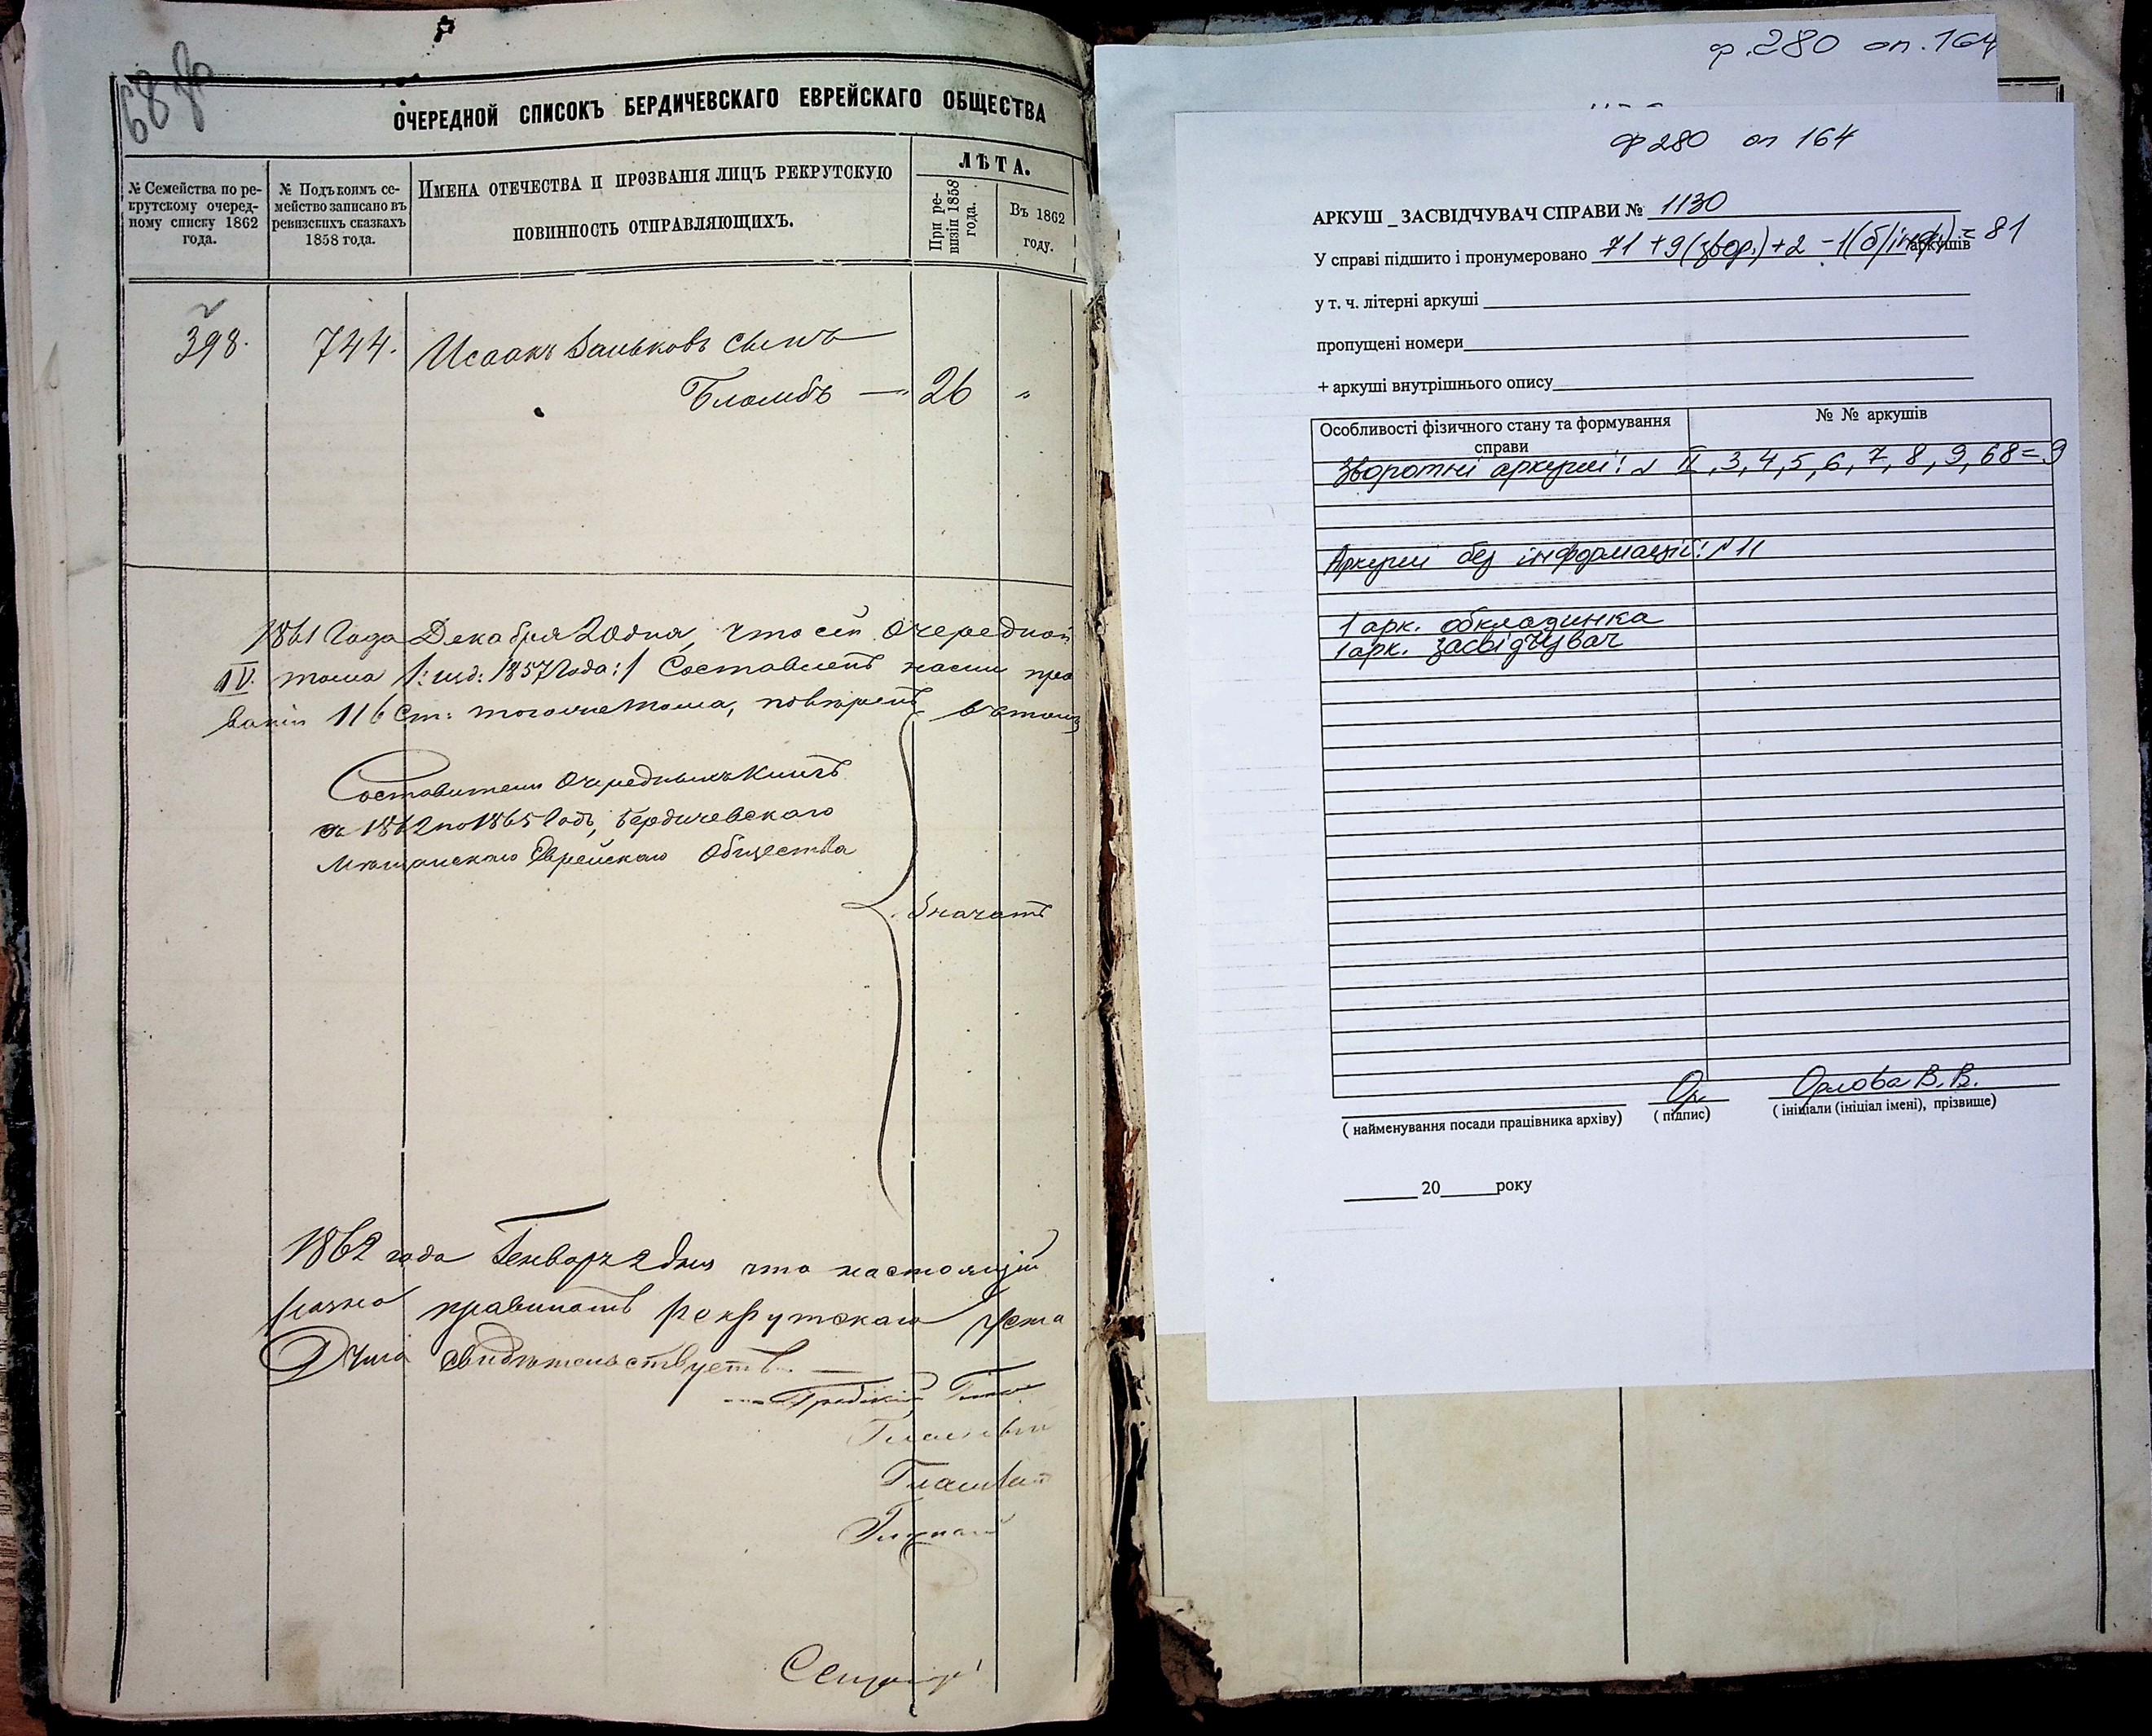 68 зв
ОЧЕРЕДНОЙ СПИСОКЪ БЕРДИЧЕВСКАГО ЕВРЕЙСКАГО ОБЩЕСТВА
№ Семейства по ре-
крутскому очеред-
ному списку 1862
года.
№ Подъ коимъ се-
мейство записано въ
ревизскихъ сказкахъ
1858 года.
ИМЕНА ОТЕЧЕСТВА И ПРОЗВАНІЯ ЛИЦЪ РЕКРУТСКУЮ
ПОВИННОСТЬ ОТПРАВЛЯЮЩИХЪ.
ЛѢТА.
При ре-
визіи 1858
года.
Въ 1862
году.
398.
744.
Исаакъ Ваньковъ сынъ
26 "
1861 Года Декабря 20 дня, что сей Очередной
IV. тома /: изд: 1857 Года :/ Составленъ нами пра
ваніи 116 Ст: тогоже тома, повѣренъ
Составители Очередныхъ Книгъ
съ 1862 по 1865 Годъ, Бердичевскаго
Мѣщанскаго Еврейскаго Общества
1862 года Генваря 2 дня что настоящій
правилать Рекрутскаго Уста
Дума свидѣтельствуетъ.
Градскій
Гласный
Гласный
Гласный
ф.280 оп.164
ф 280 оп 164
АРКУШ _ ЗАСВІДЧУВАЧ СПРАВИ № 1130
У справі підшито і пронумеровано 71 + 9 (звор.) + 2 - 1 (б/інф.) = 81 аркушів
у т. ч. літерні аркуші
пропущені номери
+ аркуші внутрішнього опису
Особливості фізичного стану та формування
справи
№ № аркушів
Зворотні аркуші: № II, 3, 4, 5, 6, 7, 8, 9, 68 = 9
Аркуші без інформації: № 11
1 арк. обкладинка
1 арк. засвідчувач
Ор. Орлова В. В.
( найменування посади працівника архіву) ( підпис) ( ініціали (ініціал імені), прізвище)
20 року